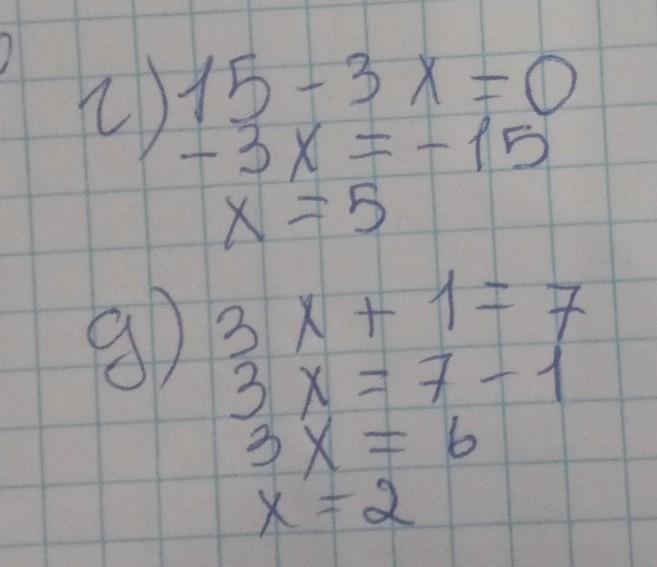 г) 15 - 3x = 0
- 3x = - 15
x = 5
д) 3x + 1 = 7
3x = 7 - 1
3x = 6
x = 2